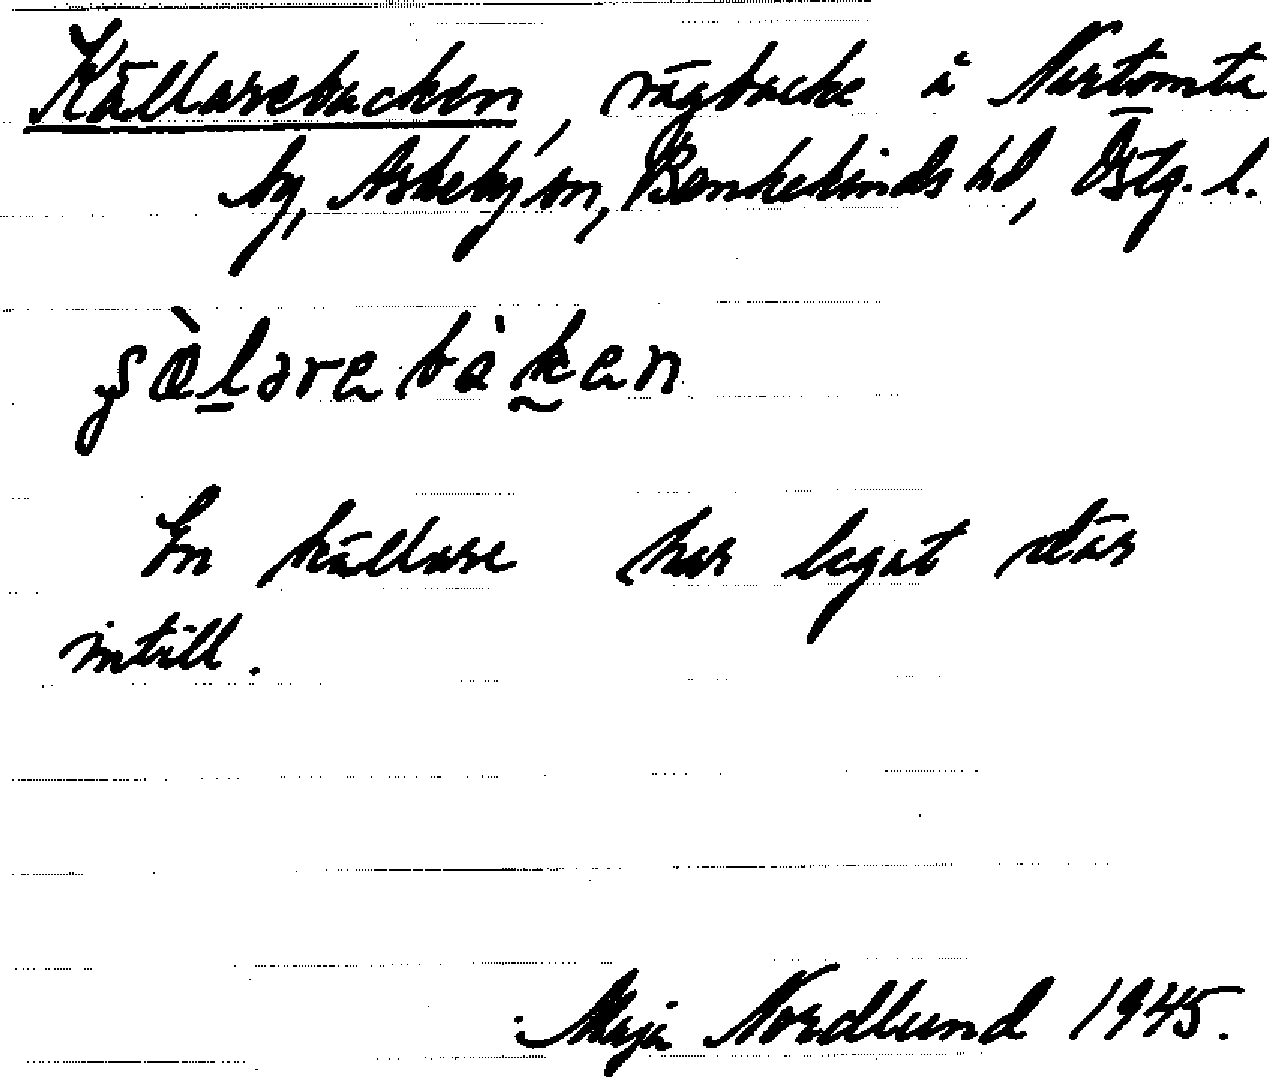 Källarebacken, vägbacke i Norrtomta
by, Askeby sn, Bankekinds hd, Östg. l.
En källare har legat där
intill.
Maja Nordlund 1945.